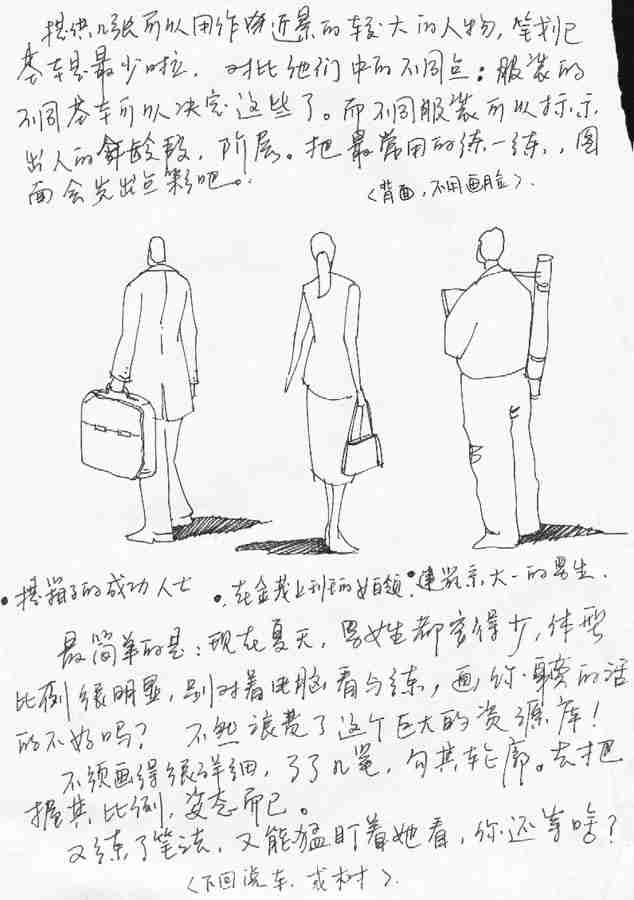 提供几张可以用作为近景的较大的人物，笔划已
基本是最少啦．对比他们中的不同点：服装的
不同基本可以决定这些了。而不同服装可以标示
出人的年龄段，阶层。把最常用的练一练，，图
面会发出点彩吧。
〈背面，不用画脸〉．
提箱子的成功人士
在金茂上班的女白领
建筑系大一的男生．
最简单的是：现在夏天，男女生都穿得少，体型
比例很明显，别对着电脑看与练，画你身旁的话
的不好吗？不然浪费了这个巨大的资源库！
不须画得很详细，了了几笔，勾其轮廓。去把
握其比例，姿态而已。
又练了笔法，又能猛盯着她看，你还等啥？
〈下回说车．或树〉．